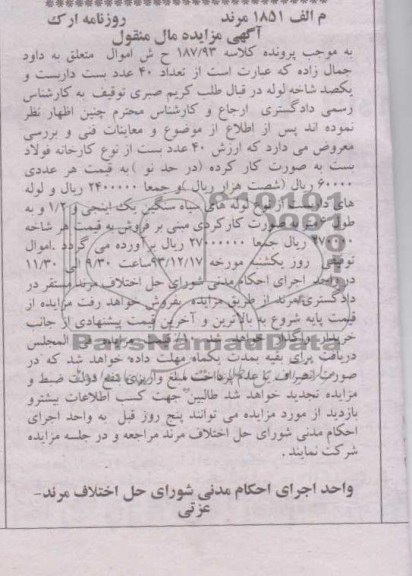 م الف ۱۸۵۱ مرند روزنامه ارک
آگهی مزایده مال منقول
به موجب پرونده کلاسه ۱۸۷/۹۳ ح ش اموال متعلق به داود
جمال زاده که عبارت است از تعداد ۴۰ عدد بست داربست و
یکصد شاخه لوله در قبال طلب کریم صبری توقیف به کارشناس
رسمی دادگستری ارجاع و کارشناس محترم چنین اظهار نظر
نموده اند پس از اطلاع از موضوع و معاینات فنی و بررسی
معروض می دارد که ارزش ۴۰ عدد بست از نوع کارخانه فولاد
بست به صورت کار کرده (در حد نو) به قیمت هر عددی
۶۰۰۰۰ ریال (شصت هزار ریال) و جمعا ۲۴۰۰۰۰۰ ریال و لوله
های از نوع لوله های سیاه سنگین یک اینچی و ۱/۲ و به
طول ۶ متر به صورت کارکردی مبنی بر فروش به قیمت هر شاخه
۲۷۰۰۰۰ ریال جمعا ۲۷۰۰۰۰۰۰ ریال برآورده می گردد .اموال
توقیفی روز یکشنبه مورخه ۹۳/۱۲/۱۷ ساعت ۹/۳۰ الی ۱۱/۳۰
در واحد اجرای احکام مدنی شورای حل اختلاف مرند مستقر در
دادگستری مرند از طریق مزایده بفروش خواهد رفت مزایده از
قیمت پایه شروع به بالاترین و آخرین قیمت پیشنهادی از جانب
خریدار واگذار خواهد شد ۱۰٪ قیمت مزایده فی المجلس
دریافت برای بقیه بمدت یکماه مهلت داده خواهد شد که در
صورت انصراف یا عدم پرداخت مبلغ واریزی بنفع دولت ضبط و
مزایده تجدید خواهد شد طالبین جهت کسب اطلاعات بیشتر و
بازدید از مورد مزایده می توانند پنج روز قبل به واحد اجرای
احکام مدنی شورای حل اختلاف مرند مراجعه و در جلسه مزایده
شرکت نمایند .
واحد اجرای احکام مدنی شورای حل اختلاف مرند-
عزتی
ParsNamadData